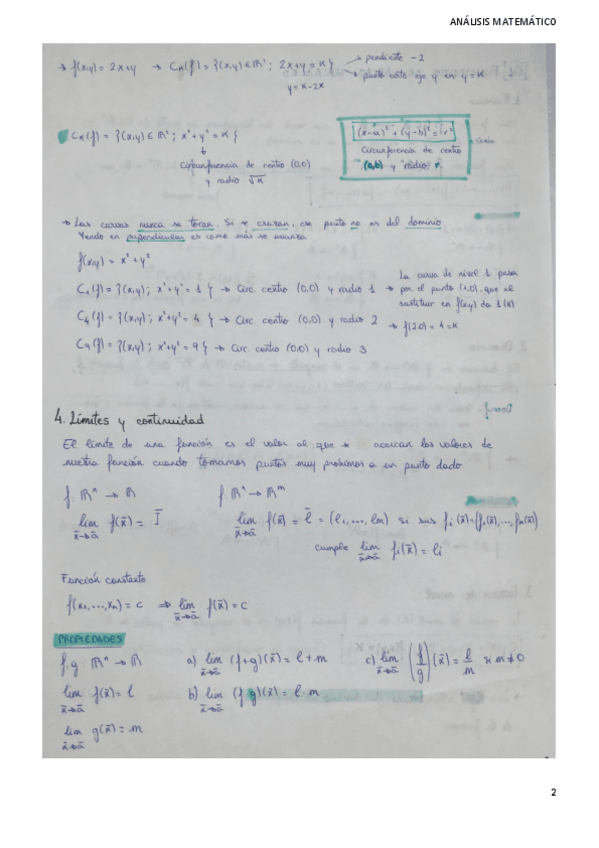 ANÁLISIS MATEMÁTICO
→ f(x,y) = 2x+y → Cκ(f) = {(x,y) ∈ ℝⁿ ; 2x+y = K} → pendiente -2
→ punto corte eje y en y=K
y = K-2x
Cκ(f) = {(x,y) ∈ ℝⁿ ; x²+y² = K}
Circunferencia de centro (0,0)
y radio √K
(x-a)² + (y-b)² = r²
Circunferencia de centro
(a,b) y radio r
→ Las curvas nunca se tocan. Si se cruzan, ese punto no es del dominio
Yendo en perpendicular es como más se avanza
f(x,y) = x² + y²
C₁(f) = {(x,y) ; x²+y² = 1} → Circ. centro (0,0) y radio 1 →
C₄(f) = {(x,y) ; x²+y² = 4} → Circ. centro (0,0) y radio 2
C₉(f) = {(x,y) ; x²+y² = 9} → Circ. centro (0,0) y radio 3
La curva de nivel 1 pasa
por el punto (1,0), que al
sustituir en f(x,y) da 1 (K)
→ f(2,0) = 4 = K
4. Límites y continuidad
El límite de una función es el valor al que se acercan los valores de
nuestra función cuando tomamos puntos muy próximos a un punto dado
f: ℝⁿ → ℝ f: ℝⁿ → ℝᵐ
lim f(x̄) = l̄ lim f(x̄) = l̄ = (l₁,...,lm) si sus fi (x̄)=(f₁(x̄),...,fm(x̄))
x̄→ā x̄→ā
cumple lim fi(x̄) = li
x̄→ā
Función constante
f(x₁,...,xn) = c ⇒ lim f(x̄) = c
x̄→ā
PROPIEDADES
f,g: ℝⁿ → ℝ a) lim (f+g)(x̄) = l+m c) lim (f/g)(x̄) = l/m si m≠0
x̄→ā x̄→ā
lim f(x̄) = l b) lim (f·g)(x̄) = l·m
x̄→ā x̄→ā
lim g(x̄) = m
x̄→ā
2